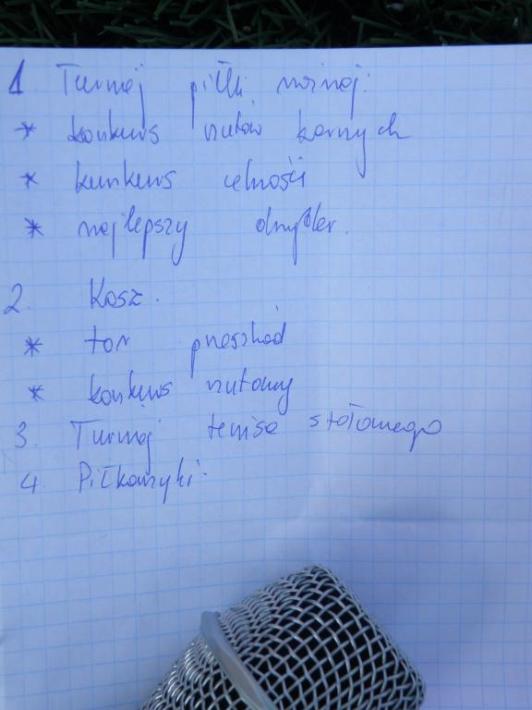 1 Turniej piłki nożnej:
* konkurs rzutów karnych
* kunkurs celności
* najlepszy drybler.
2. Kosz.
* tor przeszkód
* konkurs rzutowy
3. Turniej tenisa stołowego
4. Piłkarzyki.